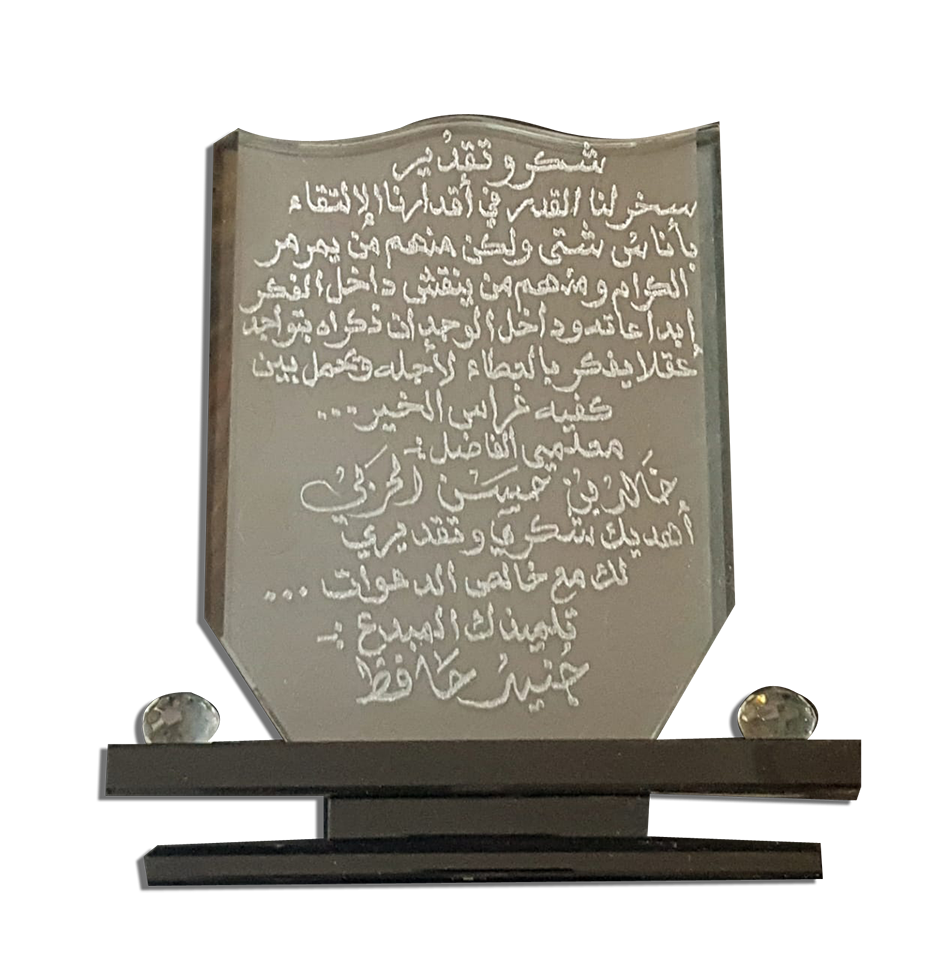 شكر و تقدير
سخر لنا القدر في أقدارنا الإلتقاء
بأناس شتى ولكن منهم من يمر مر
الكرام ومنهم من ينقش داخل الفكر
إبداعاته وداخل الوجدان ذكراه بتواجد
عقلا يفكر بالعطاء لأجله وحمل بين
كفيه غراس الخير...
معلمي الفاضل :-
خالد بن حسين الحربي
أهديك شكري و تقديري
لك مع خالص الدعوات ...
تلميذك المبدع :-
جنيد حافظ